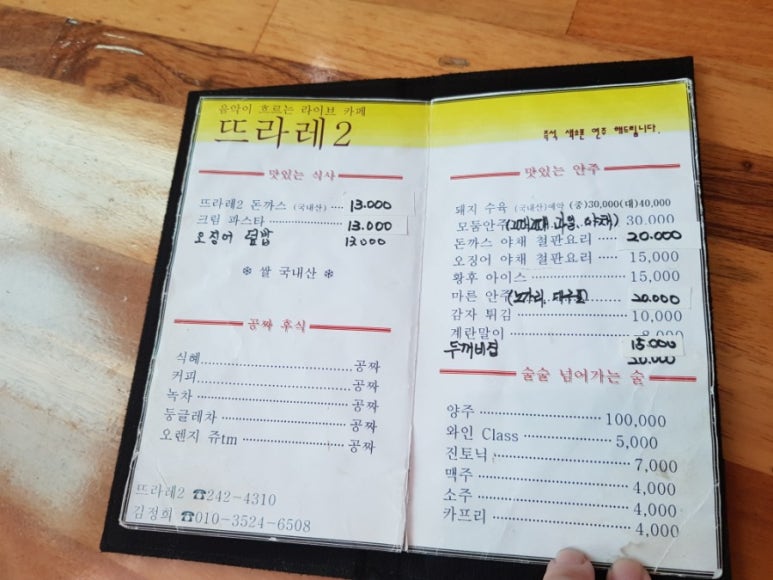 음악이 흐르는 라이브 카페
뜨라레2
맛있는 식사
뜨라레2 돈까스 (국내산) ··· 13.000
크림 파스타 ··· 13.000
오징어 덮밥 13000
※ 쌀 국내산 ※
공짜 후식
식혜 ··· 공짜
커피 ··· 공짜
녹차 ··· 공짜
둥글레차 ··· 공짜
오렌지 쥬tm ··· 공짜
뜨라레2 ☎242-4310
김정희 ☎010-3524-6508
즉석 색소폰 연주 해드립니다.
맛있는 안주
돼지 수육 (국내산)예약 (중)30,000(대)40,000
모둠안주 과일, 야채) 30,000
돈까스 야채 철판요리 ··· 20.000
오징어 야채 철판요리 ··· 15,000
황후 아이스 ··· 15,000
마른 안주(노가리, 대구포) 20.000
감자 튀김 ··· 10,000
계란말이 15.000
두꺼비집
술술 넘어가는 술
양주 ··· 100,000
와인 Class ··· 5,000
진토닉 ··· 7,000
맥주 ··· 4,000
소주 ··· 4,000
카프리 ··· 4,000